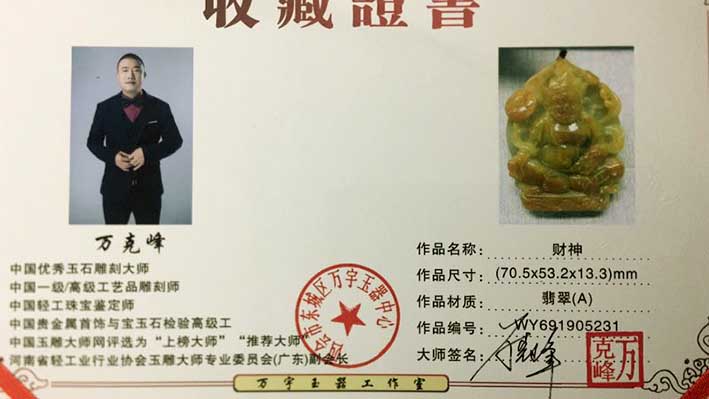 收藏證書
万克峰
中国优秀玉石雕刻大师
中国一级/高级工艺品雕刻师
中国轻工珠宝鉴定师
中国贵金属首饰与宝玉石检验高级工
中国玉雕大师网评选为“上榜大师”“推荐大师”
河南省轻工业行业协会玉雕大师专业委员会(广东)副会长
作品名称: 财神
作品尺寸: (70.5x53.2x13.3)mm
作品材质: 翡翠(A)
作品编号: WY691905231
大师签名: 万克峰
万克峰
市东城区万宇玉器中心
万宇玉器工作室